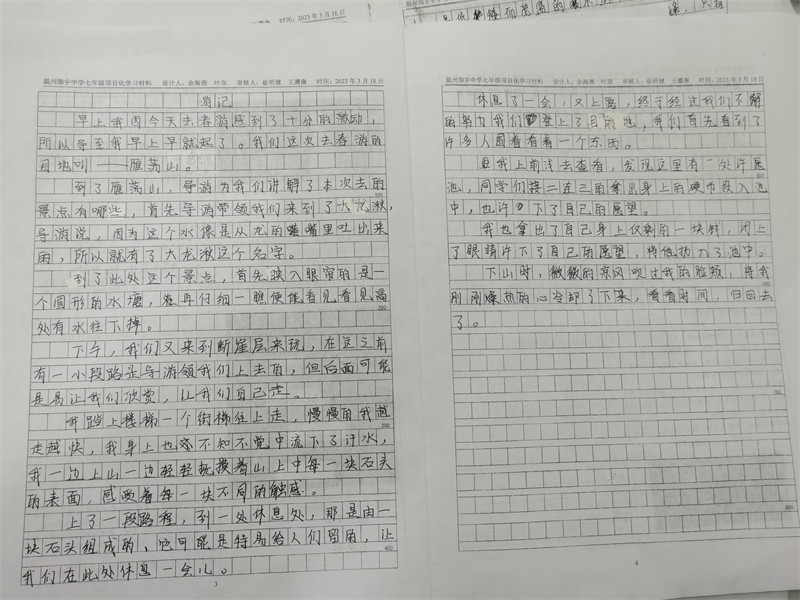 时间：2023年3月18日
温州翔宇中学七年级项目化学习材料 设计人：余海燕 叶双 审核人：崔明建 王 时间：2023年3月18日
游记
早上我因今天去春游感到了十分的激动，
所以导至我早上早早就起了。我们这次去春游的
目地叫——雁荡山。
到了雁荡山，导游为我们讲解了本次去的
景点有哪些，首先导游带领我们来到了大龙湫，
导游说，因为这个水像是从龙的嘴里吐出来
的，所以就有了大龙湫这个名字。
到了此处这个景点，首先映入眼帘的是一
个圆形的水塘，再仔细一瞧便能看见看见高
处有水往下掉。
200
下午，我们又来到断崖层来玩，在这之前
有一小段路是导游领我们上去的，但后面可能
是易让我们欣赏，让我们自己走。
我踏上楼梯一个街梯往上走，慢慢的我越
300
走越快，我身上也不知不觉中流下了汗水，
我一边上山一边轻轻抚摸着山上中每一块石头
的表面，感受着每一块不同的触感。
上了一段路程，到一处休息处，那是由一
块石头组成的、它可能是特易给人们留的，让
400
我们在此处休息一会儿。
3
温州翔宇中学七年级项目化学习材料 设计人：余海燕 叶双 审核人：崔明建 王 时间：2023年3月18日
休息了一会，又上路，终于经过我们不懈
的努力我们登上了目的地，我们首先看到了
许多人围着看着一个东西。
我上前浅去查看，发现这里有一处许愿
500
池，同学们接二连三的拿出身上的硬币投入池
中，也许下了自己的愿望。
我也拿出了自己身上仅剩的一块钱，闭上
了眼睛许下了自己的愿望，将低抛入了池中。
下山时，微微的凉风吹过我的脸颊，将我
600
刚刚燥热的心冷却了下来，看看时间，归回去
了。
700
800
4